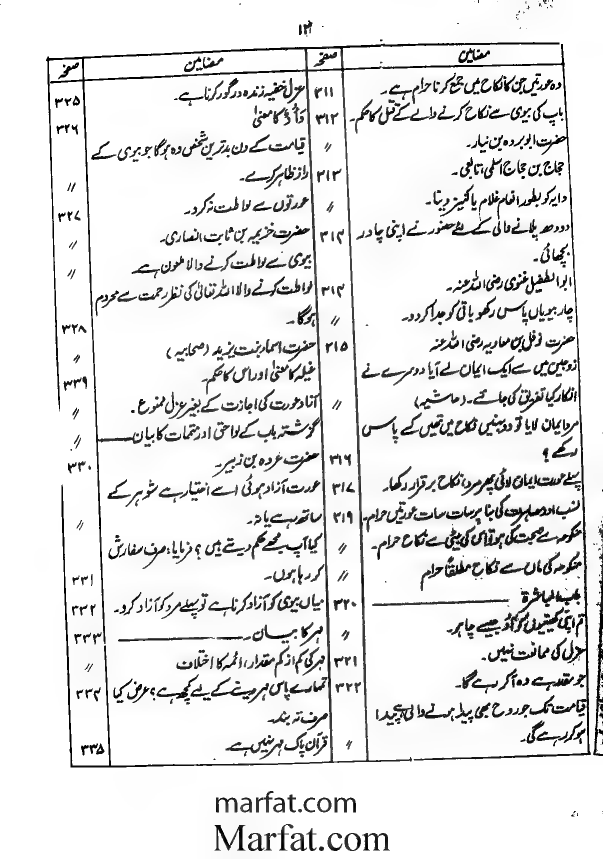 ۱۳
مضامین صفحہ
وہ عورتیں جن کا نکاح میں جمع کرنا حرام ہے۔ ۳۱۱
باپ کی بیوی سے نکاح کرنے والے کے قتل کا حکم۔ ۳۱۲
حضرت ابو بردہ بن نیار۔ 〃
حجاج بن حجاج اسلمی تابعی۔ ۳۱۳
دایہ کو بطور انعام غلام یا کنیز دینا۔ 〃
دودھ پلانے والی کے لئے حضور نے اپنی چادر ۳۱۳
بچھائی۔
ابو الطفیل غنوی رضی اللہ عنہ۔ ۳۱۴
چار بیویاں پاس رکھو باقی کو جدا کر دو۔ 〃
حضرت نوفل بن معاویہ رضی اللہ عنہ ۳۱۵
زوجین میں سے ایک ایمان لے آیا دوسرے نے
انکار کیا تفریق کی جائے۔ (حاشیہ) 〃
مرد ایمان لایا تو دو بہنیں نکاح میں تھیں کسے پاس
رکھے؟ ۳۱۶
پہلے عورت ایمان لائی پھر مرد، نکاح برقرار رکھا۔ ۳۱۷
نسب اور مصاہرت کی بنا پر سات سات عورتیں حرام۔ ۳۱۹
منکوحہ سے صحبت کی ہو تو اس کی بیٹی سے نکاح حرام۔ 〃
منکوحہ کی ماں سے نکاح مطلقاً حرام 〃
باب المباشرۃ ۳۲۰
تم اپنی کھیتیوں کو آؤ جیسے چاہو۔ 〃
عزل کی ممانعت نہیں۔ ۳۲۱
جو مقدر ہے وہ آکر رہے گا۔ ۳۲۲
قیامت تک جو روح بھی پیدا ہونے والی ہے پیدا
ہو کر رہے گی۔ 〃
مضامین صفحہ
عزل خفیہ زندہ درگور کرنا ہے۔ ۳۲۵
وَأْد کا معنیٰ ۳۲۶
قیامت کے دن بدترین شخص وہ ہوگا جو بیوی کے
راز ظاہر کرے۔ 〃
عورتوں سے لواطت نہ کرو۔ ۳۲۷
حضرت خزیمہ بن ثابت انصاری۔ 〃
بیوی سے لواطت کرنے والا ملعون ہے۔ 〃
لواطت کرنے والا اللہ تعالیٰ کی نظر رحمت سے محروم
ہوگا۔ ۳۲۸
حضرت اسماء بنت یزید (صحابیہ) 〃
غیلہ کا معنیٰ اور اس کا حکم۔ ۳۳۹
آزاد عورت کی اجازت کے بغیر عزل ممنوع۔ 〃
گزشتہ باب کے لواحق اور تتمات کا بیان 〃
حضرت عروہ بن زبیر۔ ۳۳۰
عورت آزاد ہوئی اسے اختیار ہے شوہر کے
ساتھ رہے یا نہ۔ 〃
کیا آپ مجھے حکم دیتے ہیں؟ فرمایا، صرف سفارش
کر رہا ہوں۔ ۳۳۱
میاں بیوی کو آزاد کرنا ہے تو پہلے مرد کو آزاد کرو۔ ۳۳۲
مہر کا بیان۔ ۳۳۳
مہر کی کم از کم مقدار، ائمہ کا اختلاف 〃
تمہارے پاس مہر دینے کے لیے کچھ ہے؟ عرض کیا ۳۳۴
صرف تہ بند۔
قرآن پاک مہر نہیں ہے۔ ۳۳۵
marfat.com
Marfat.com